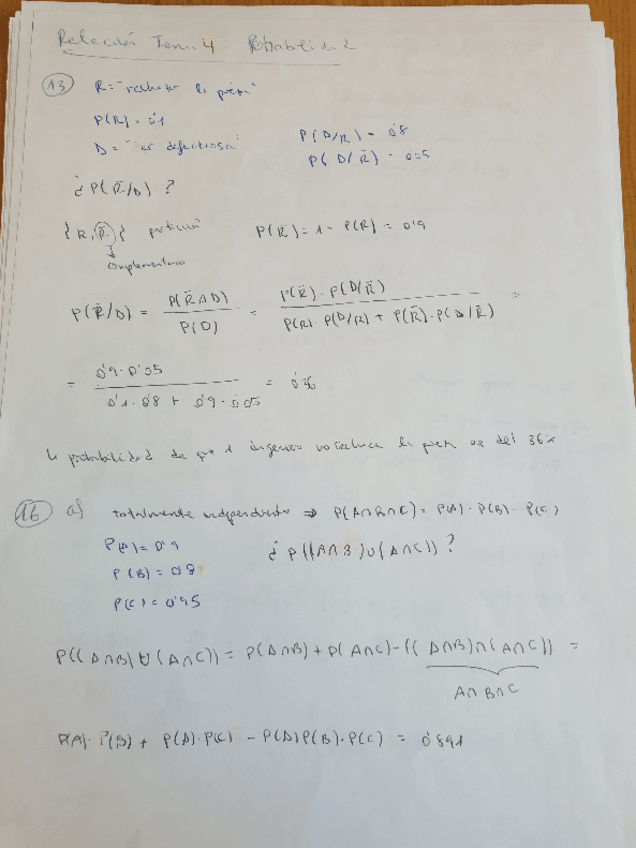 Relación Tema 4: Probabilidad
13 R = "rechazar la pieza"
P(R) = 0'1
D = "ser defectuosa"
P(D/R) = 0'8
P(D/R̄) = 0'05
¿P(R̄/D)?
{R, R̄} partición
P(R̄) = 1 - P(R) = 0'9
complementario
P(R̄/D) = P(R̄∩D) / P(D) = P(R̄)·P(D/R̄) / P(R)·P(D/R) + P(R̄)·P(D/R̄) =
= 0'9·0'05 / 0'1·0'8 + 0'9·0'05 = 0'36
la probabilidad de que 1 ingeniero no rechace la pieza es del 36%
16 a) totalmente independientes ⇒ P(A∩B∩C) = P(A)·P(B)·P(C)
P(A) = 0'9
P(B) = 0'8
P(C) = 0'95
¿P((A∩B)∪(A∩C))?
P((A∩B)∪(A∩C)) = P(A∩B) + P(A∩C) - ((A∩B)∩(A∩C)) =
A∩B∩C
P(A)·P(B) + P(A)·P(C) - P(A)P(B)·P(C) = 0'891